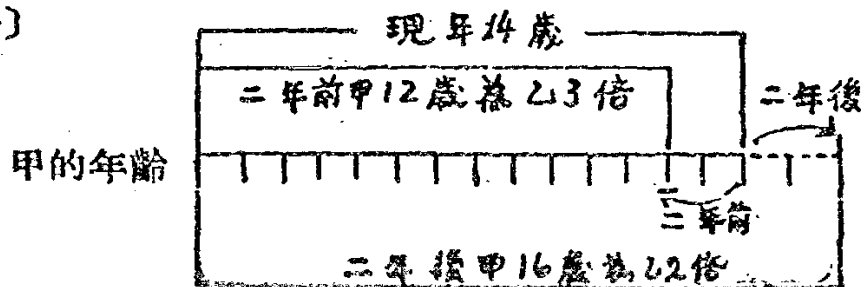 現年14歲
二年前甲12歲為乙3倍
二年後
甲的年齡
二年前
二年後甲16歲為乙2倍